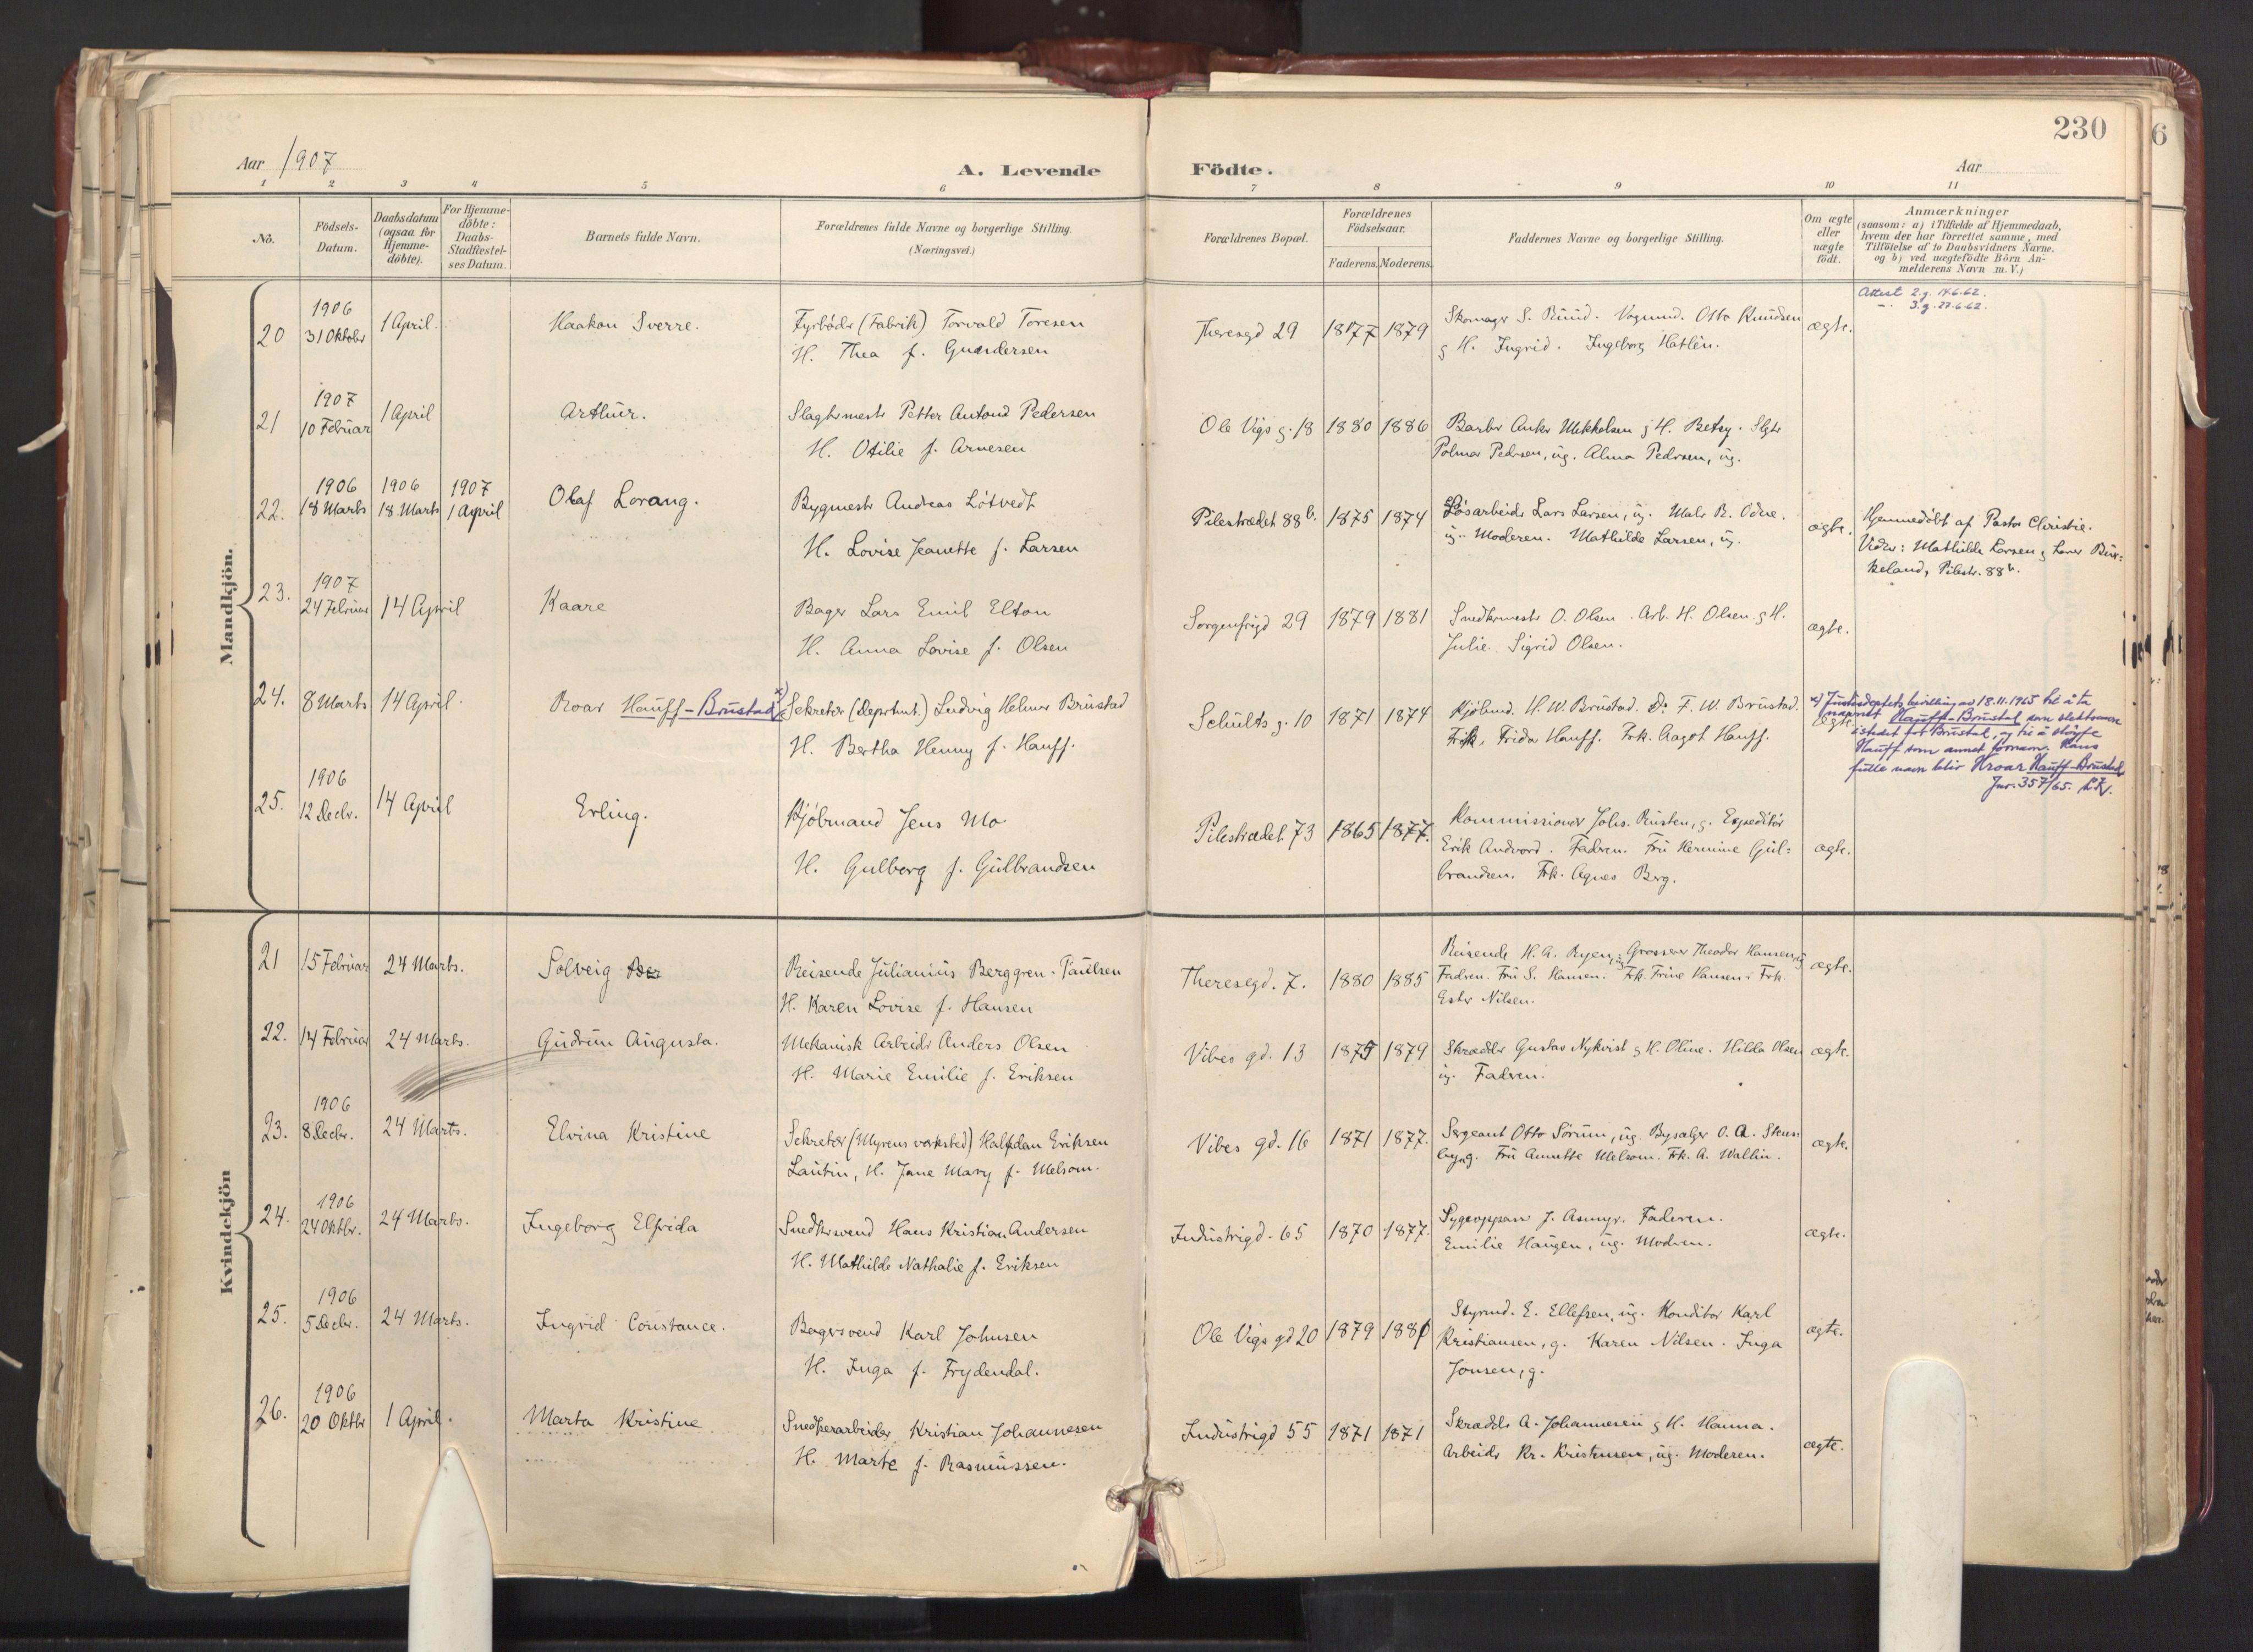 230
6
Aar 1907
A. Levende
Födte.
Aar
1 2 3 4 5 6 7 8 9 10 11
No.
Födsels-
Datum.
Daabsdatum
(ogsaa for
Hjemme-
döbte).
For Hjemme-
döbte:
Daabs-
Stadfæstel-
ses Datum.
Barnets fulde Navn.
Forældrenes fulde Navne og borgerlige Stilling.
(Næringsvei.)
Forældrenes Bopæl.
Forældrenes
Födselsaar.
Faderens. Moderens.
Faddernes Navne og borgerlige Stilling.
Om ægte
eller
uægte
födt.
Anmærkninger
(saasom: a) i Tilfælde af Hjemmedaab,
hvem der har forrettet samme, med
Tilföielse af to Daabsvidners Navne.
og b) ved uægtefödte Börn An-
melderens Navn m. V.)
Mandkjön.
1906
20 31 Oktober 1 April. Haakon Sverre. Fyrbøder (Fabrik) Torvald Toresen
H. Thea f. Gundersen
Theresegd 29 1877 1879
Skomager S. Ruud. Vognmd. Otto Knudsen
g H. Ingrid. Ingeborg Hatlén.
ægte.
Attest 2.g. 14.6.62.
-. 3.g. 27.6.62.
1907
21 10 Februar 1 April Arthur. Slagtermester Petter Antond Pedersen
H. Otilie f. Arnesen
Ole Vigs g. 18 1880 1886
Barber Anker Mikkelsen g H. Betzy. Slgtr
Palmar Pedersen, ug. Alma Pedersen, ug.
1906 1906 1907
22. 18 Marts 18 Marts 1 April Olaf Lorang. Bygmester Andreas Lötvedt
H. Lovise Jeanette f. Larsen
Pilestrædet 88b. 1875 1874
Løsarbeider Lars Larsen, ug. Maler R. Odne.
ug. Moderen. Mathilde Larsen, ug.
ægte.
Hjemmedöbt af Pastor Christie.
Vidner: Mathilde Larsen g Lars Bir-
keland, Pilestr. 88b.
1907
23. 24 Februar 14 April Kaare Bager Lars Emil Elton
H. Anna Lovise f. Olsen
Sorgenfrigd 29 1879 1881
Snedkermester O. Olsen. Arb. H. Olsen. g H.
Julie. Sigrid Olsen.
ægte.
24. 8 Marts 14 April. Roar Hauff-Brustad x) Sekretær (Deprtmt.) Ludvig Helmer Brustad
H. Bertha Henny f. Hauff.
Schults g. 10 1871 1874
Kjöbmd. H. W. Brustad. Dr F. W. Brustad.
Frk. Frida Hauff. Frk. Aagot Hauff.
ægte.
x) Justisdeptets bevilling av 18.11.1965 til å ta
navnet Hauff-Brustad som slektsnavn
istedet for Brustad, og til å sløyfe
Hauff som annet fornavn. Hans
fulle navn blir Hroar Hauff-Brustad
Jnr. 357/65.
1906
25. 12 Decbr. 14 April Erling. Kjöbmand Jens Mo
H. Gulborg f. Gulbrandsen
Pilestrædet 73 1865 1877.
Kommissionær Johs. Rusten, g. Expeditör
Erik Andvord. Fadren. Fru Hermine Gul-
brandsen. Frk. Agnes Berg.
ægte.
Kvindekjön
21 15 Februar 24 Marts. Solveig Ber Reisende Julianius Berggren-Paulsen
H. Karen Lovise f. Hansen
Theresegd. 7. 1880 1885
Reisende H. A. Ryen, ug Grosserer Theodor Hansen, ug
Fadren. Fru S. Hansen. Frk. Trine Hansen. Frk.
Ester Nilsen.
ægte.
22. 14 Februar 24 Marts. Gudrun Augusta. Mekanisk Arbeider Anders Olsen
H. Marie Emilie f. Eriksen
Vibes gd. 13 1875 1879
Skrædder Gustav Nykvist g H. Oline. Hilda Olsen
ug. Fadren.
ægte.
1906
23. 8 Decbr. 24 Marts. Elvina Kristine Sekretær (Myrens verksted) Halfdan Eriksen
Lautin, H. Jane Mary f. Melsom.
Vibes gd. 16 1871 1877.
Sergeant Otto Sörum, ug. Bysælger O. A. Steens-
byg. Fru Annette Melsom. Frk. A. Wallin.
ægte.
1906
24. 24 Oktbr. 24 Marts. Ingeborg Elfrida Snedkersvend Hans Kristian Andersen
H. Mathilde Nathalie f. Eriksen
Industrigd. 65 1870 1877.
Sygeoppass. J. Asmyr. Faderen.
Emilie Haugen, ug. Modren.
ægte.
1906
25. 5 Decbr. 24 Marts. Ingrid Constance. Bagersvend Karl Johnsen
H. Inga f. Frydendal.
Ole Vigs gd 20 1879 1881
Styrmd. E. Ellefsen, ug. Konditor Karl
Kristiansen, g. Karen Nilsen. Inga
Jonsen, g.
ægte.
1906
26. 20 Oktbr 1 April. Marta Kristine Snedkerarbeider Kristian Johannesen
H. Marte f. Rasmussen.
Industrigd 55 1871 1871
Skrædder A. Johannesen g H. Hanna.
Arbeider Kr. Kristensen, ug. Moderen.
ægte.